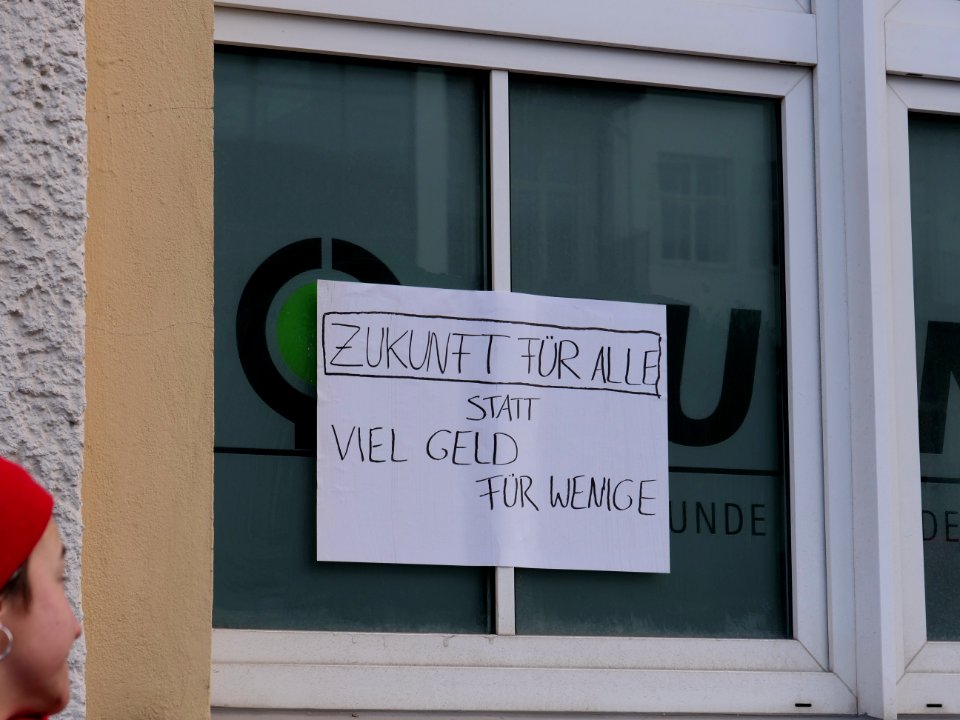 ZUKUNFT FÜR ALLE
STATT
VIEL GELD
FÜR WENIGE
U
UNDE
DE